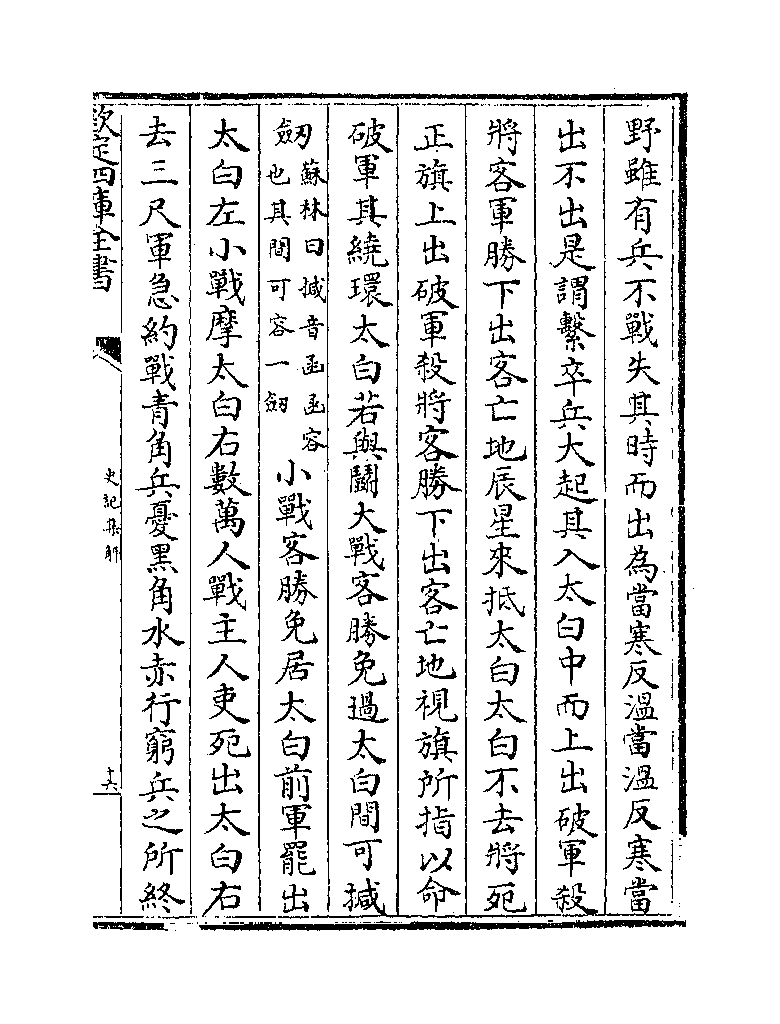 野雖有兵不戰失其時而出為當寒反溫當溫反寒當
出不出是謂擊卒兵大起其入太白中而上出破軍殺
將客軍勝下出客亡地辰星來抵太白太白不去將死
正旗上出破軍殺將客勝下出客亡地視旗所指以命
破軍其繞環太白若與鬭大戰客勝免過太白間可椷
劒
蘇林曰椷音函函容
也其間可容一劒
小戰客勝免居太白前軍罷出
太白左小戰摩太白右數萬人戰主人吏死出太白右
去三尺軍急約戰青角兵憂黑角水赤行窮兵之所終
欽定四庫全書
史記集解
十六